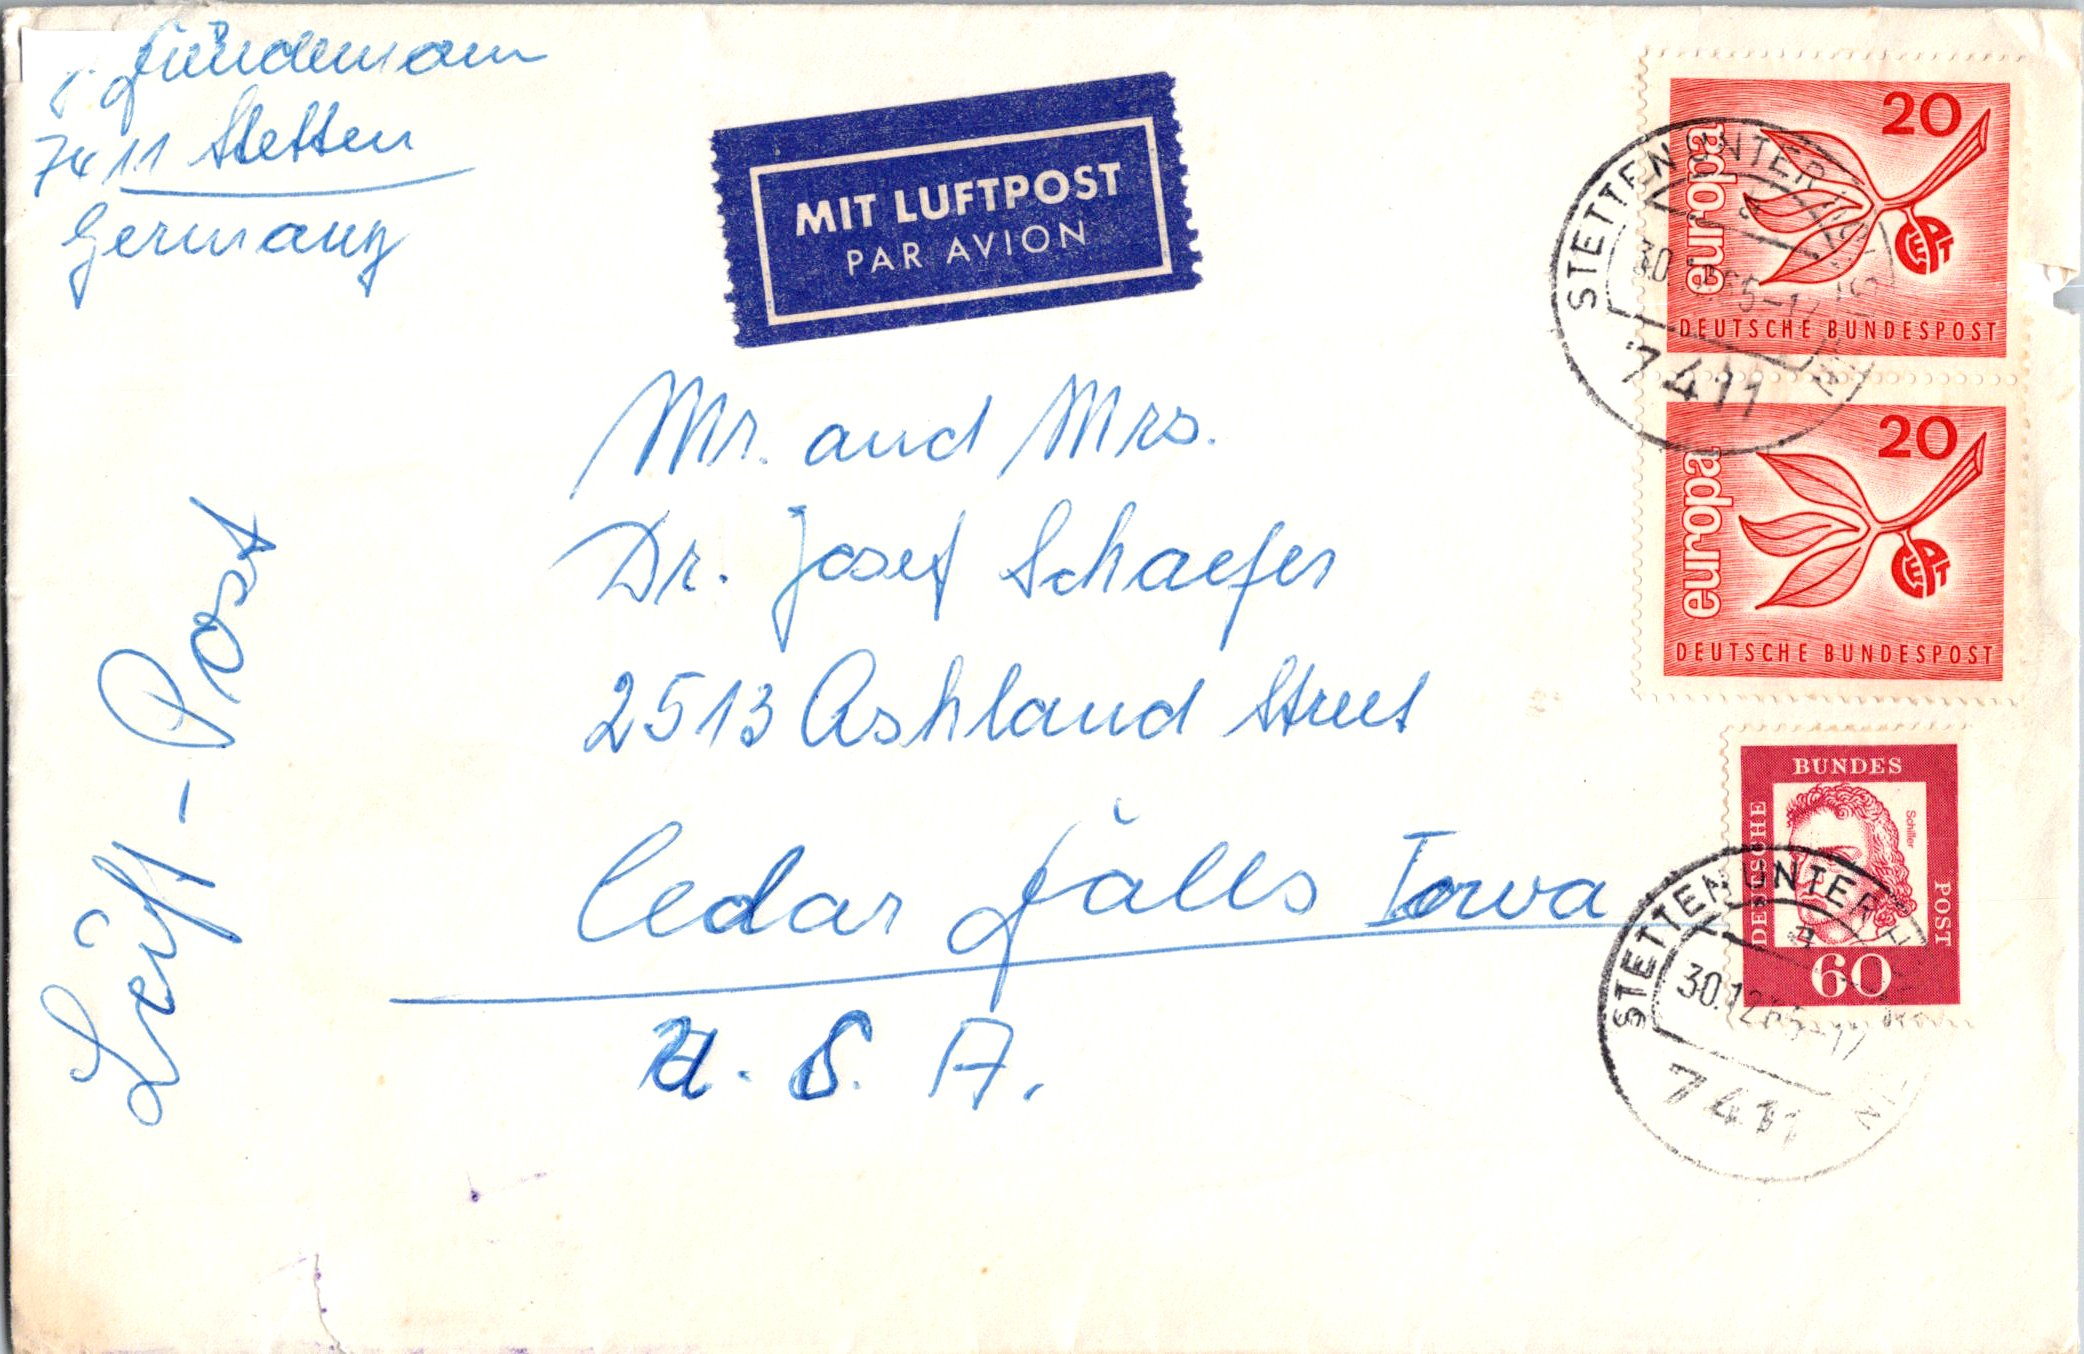 Gündemann
7411 Stetten
Germany
MIT LUFTPOST
PAR AVION
20
europa
CEPT
DEUTSCHE BUNDESPOST
STETTEN UNTER
30.12.65-17
7411
20
europa
CEPT
DEUTSCHE BUNDESPOST
Mr. and Mrs.
Dr. Josef Schaefer
2513 Ashland Street
Cedar Falls Iowa
U. S. A.
Luft-Post
BUNDES
DEUTSCHE
POST
Schiller
60
STETTEN UNTER
a
30.12.65-17
7411